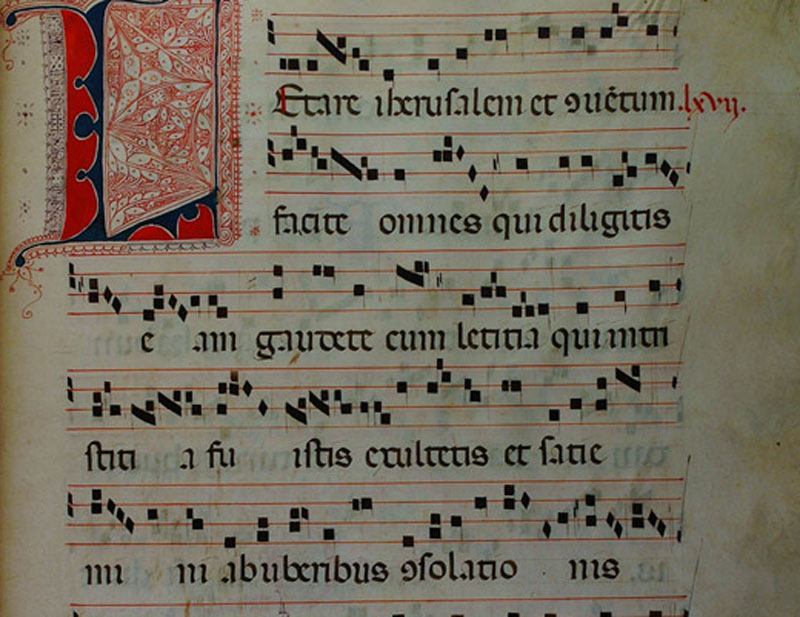 LEtare iherusalem et ꝯuētum .lxvij.
facite omnes qui diligitis
e am gaudete cum letitia qui in tri
stiti a fu istis exultetis et satie
mi ni ab uberibus ꝯsolatio nis